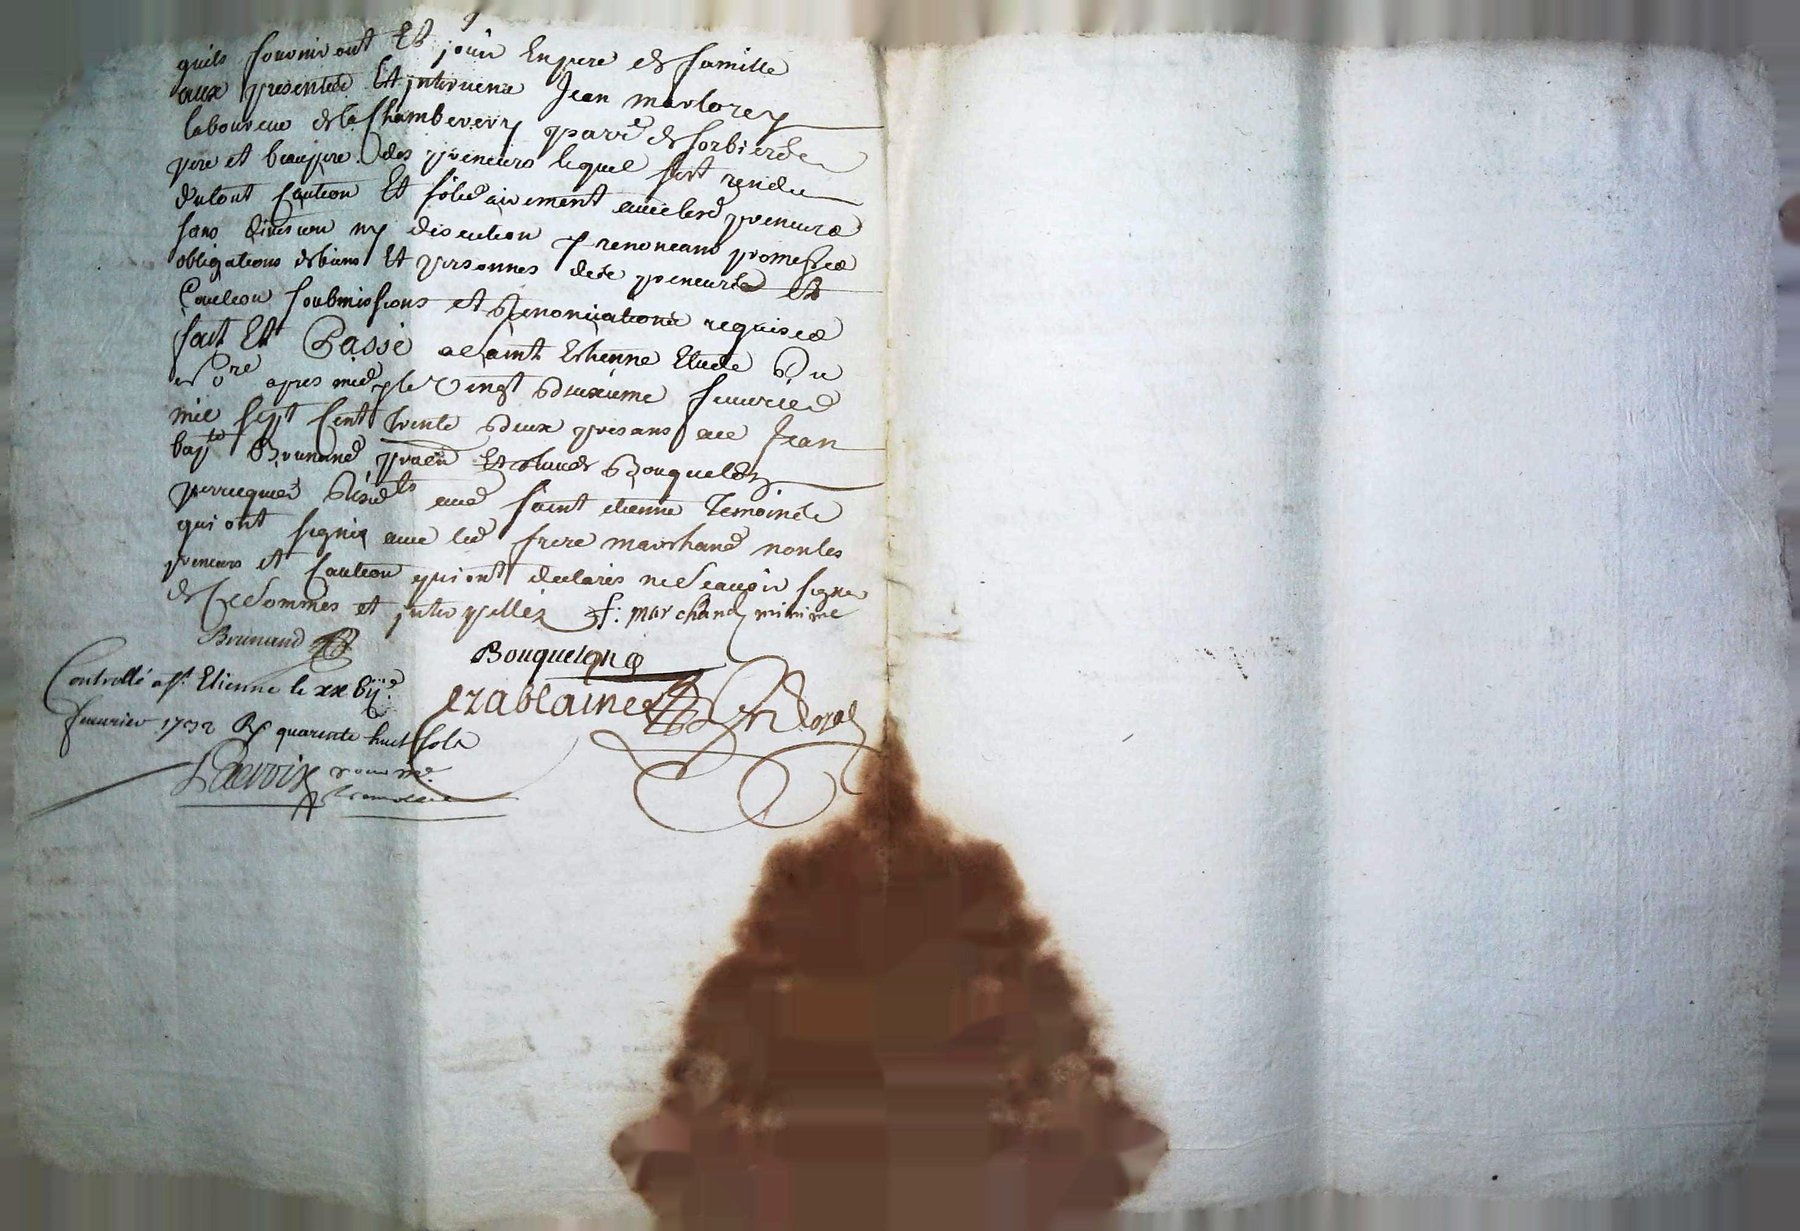 quils fourniront Et jouir En pere de famille
aux presentes Et intervenu Jean marlorey
laboureur de la Chambevery parr.e de sorbier
pere et beaupere des preneurs lequel sest rendu
dutout Caution Et solidairement avec lesd preneurs
sans division ny discution y renoncans promesses
obligations de biens Et personnes desd preneurs Et
Caution soubmissions et Renonciations requises
fait Et Passé a saint Etienne Etude Du
no.re apres midy le Vingt deuxieme feuvrier
mil sept Cent trente deux presans me Jean
bap.te Brunand prat Et claude Bouquelon
perruquier Resid.ts aud saint etienne Temoins
qui ont signé avec led frere marchand non les
preneurs et Caution qui ont declarés ne scauoir signer
de Ce sommes et interpellés f: marchand minime
Brunand
Bouquelon
Controllé a s.t Etienne le xxbij.e
feuurier 1732 R quarente huit sols
Ezablaine
Lacroix